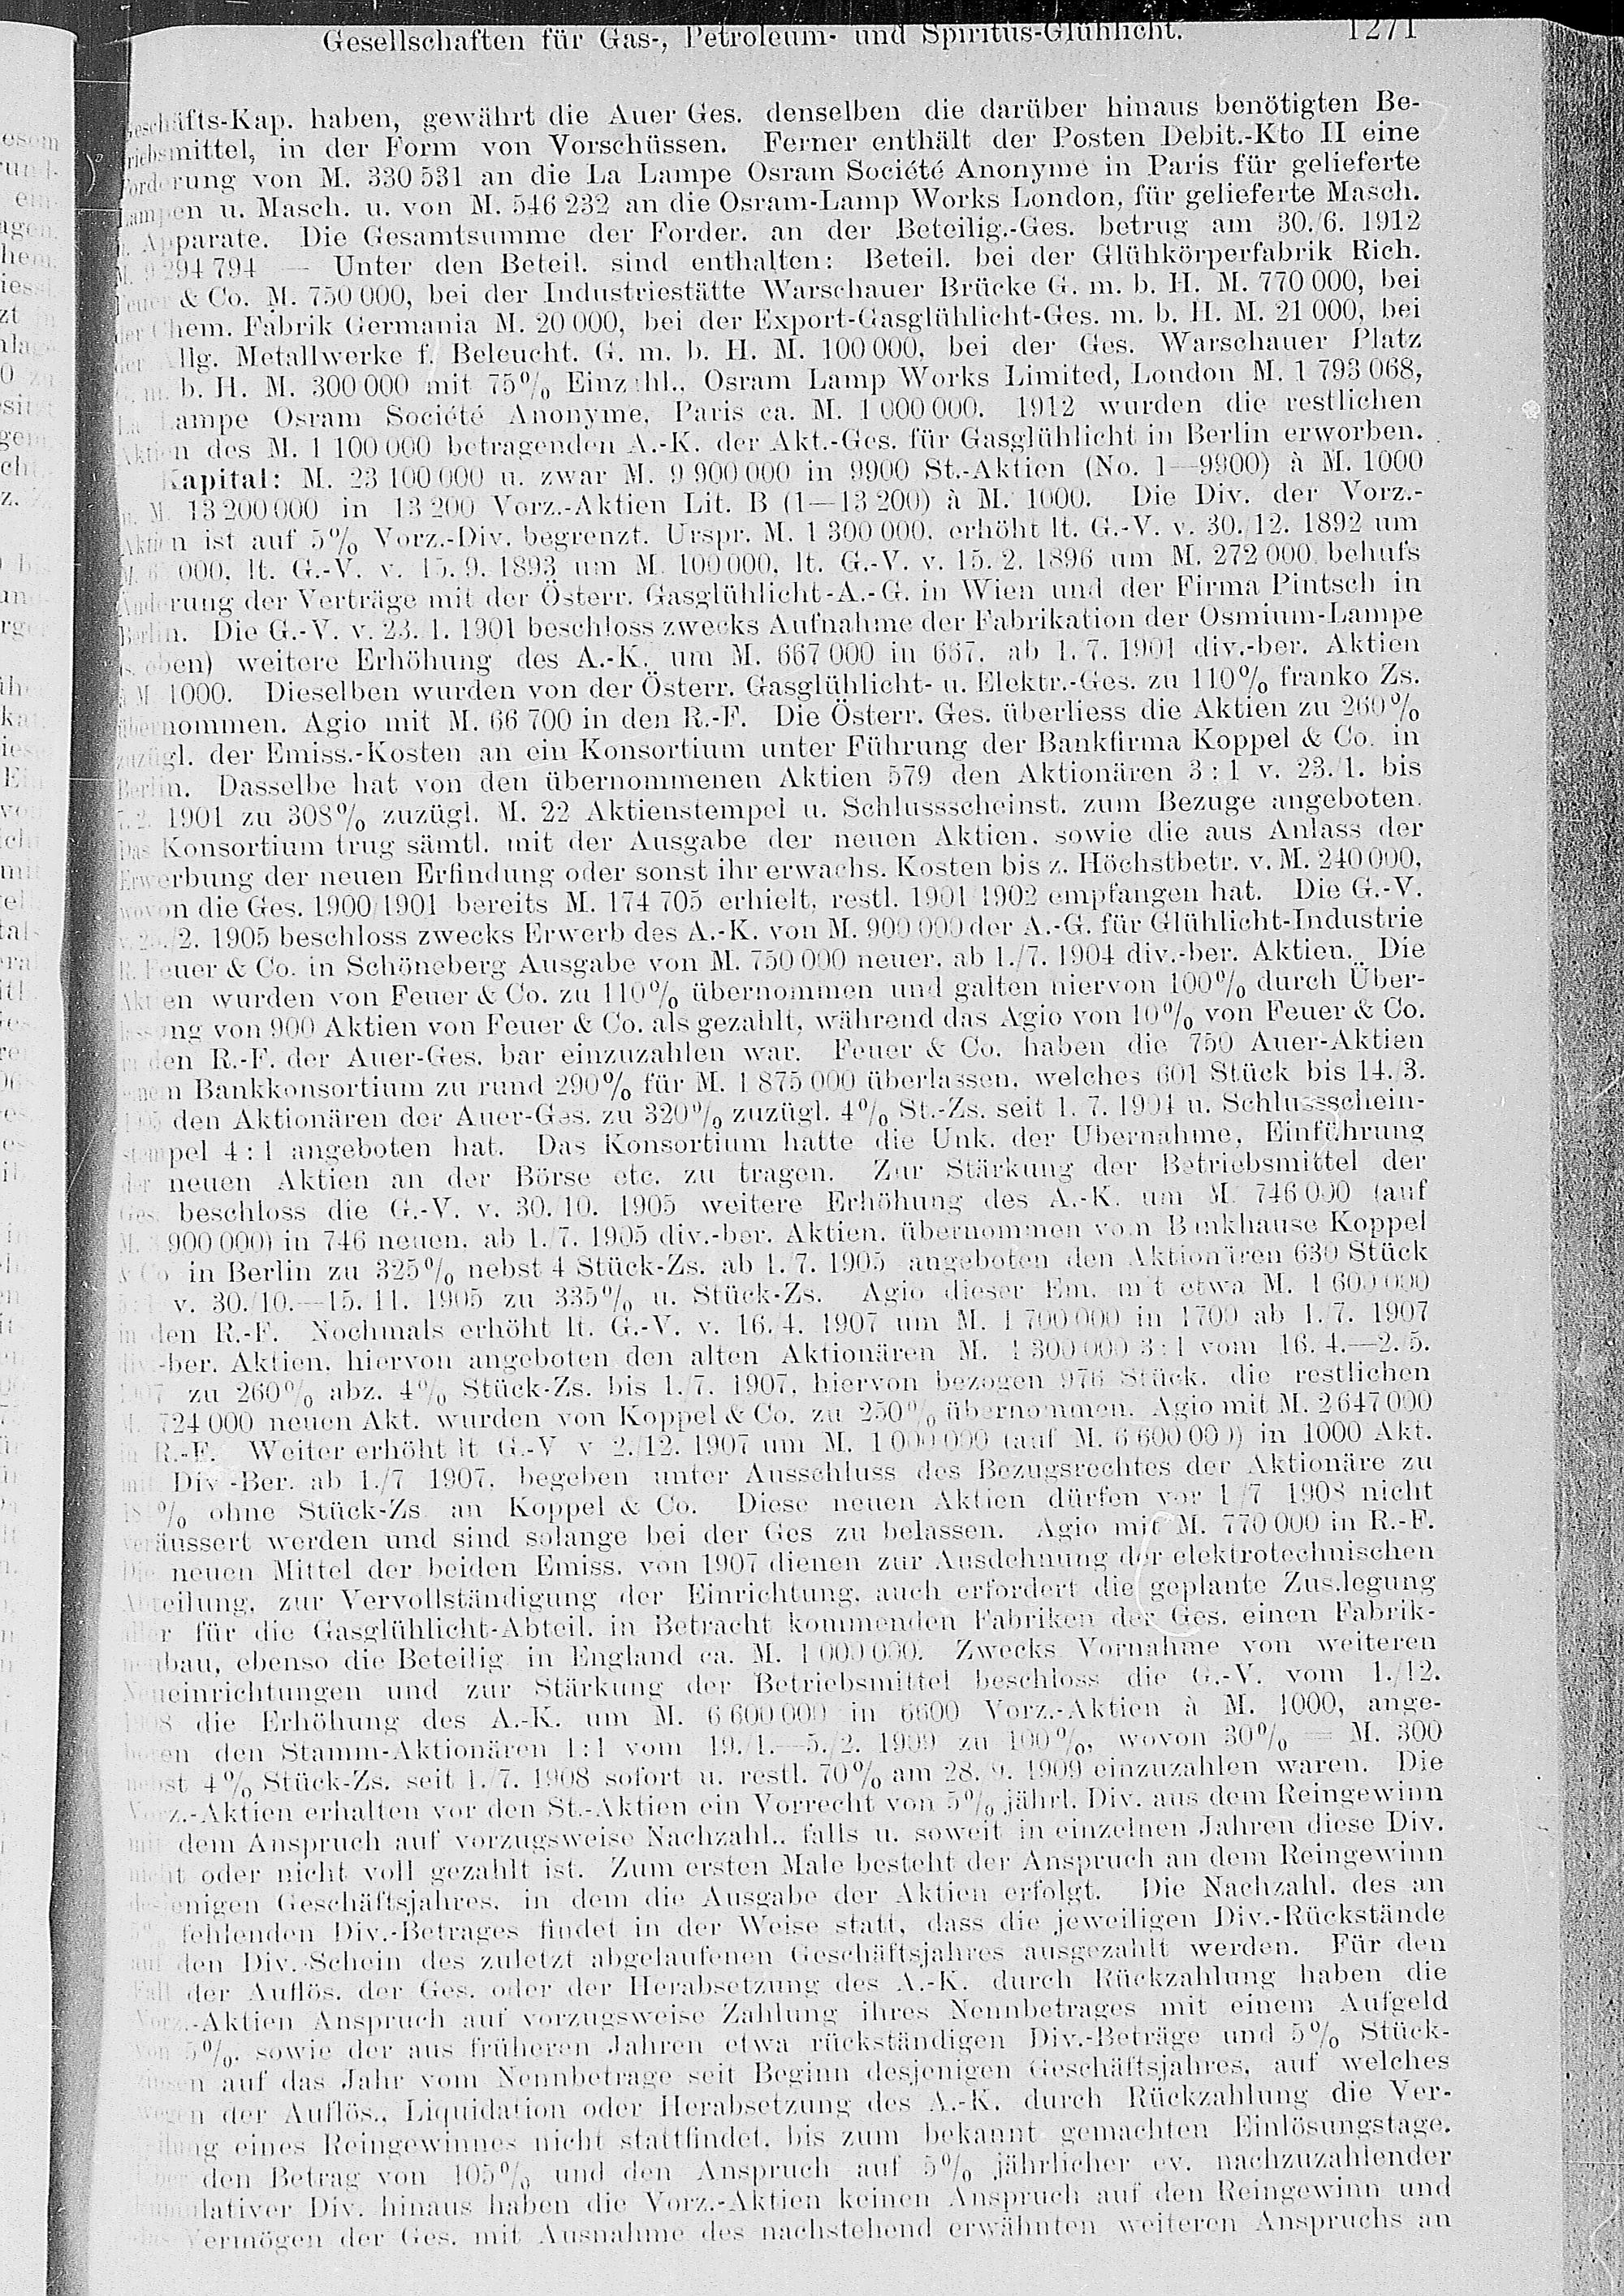 Gesellschaften für Gas-, Petroleum- und Spiritus-Glühlicht. 1271
Geschäfts-Kap. haben, gewährt die Auer Ges. denselben die darüber hinaus benötigten Be-
triebsmittel, in der Form von Vorschüssen. Ferner enthält der Posten Debit.-Kto II eine
Forderung von M. 330 531 an die La Lampe Osram Société Anonyme in Paris für gelieferte
Lampen u. Masch. u. von M. 546 232 an die Osram-Lamp Works London, für gelieferte Masch.
u. Apparate. Die Gesamtsumme der Forder. an der Beteilig.-Ges. betrug am 30./6. 1912
M. 9 294 794 — Unter den Beteil. sind enthalten: Beteil. bei der Glühkörperfabrik Rich.
Feuer & Co. M. 750 000, bei der Industriestätte Warschauer Brücke G. m. b. H. M. 770 000, bei
der Chem. Fabrik Germania M. 20 000, bei der Export-Gasglühlicht-Ges. m. b. H. M. 21 000, bei
der Allg. Metallwerke f. Beleucht. G. m. b. H. M. 100 000, bei der Ges. Warschauer Platz
G. m. b. H. M. 300 000 mit 75% Einzahl., Osram Lamp Works Limited, London M. 1 793 068,
La Lampe Osram Société Anonyme, Paris ca. M. 1 000 000. 1912 wurden die restlichen
Aktien des M. 1 100 000 betragenden A.-K. der Akt.-Ges. für Gasglühlicht in Berlin erworben.
Kapital: M. 23 100 000 u. zwar M. 9 900 000 in 9900 St.-Aktien (No. 1—9900) à M. 1000
u. M. 13 200 000 in 13 200 Vorz.-Aktien Lit. B (1—13 200) à M. 1000. Die Div. der Vorz.-
Aktien ist auf 5% Vorz.-Div. begrenzt. Urspr. M. 1 300 000, erhöht lt. G.-V. v. 30./12. 1892 um
000, lt. G.-V. v. 15./9. 1893 um M. 100 000, lt. G.-V. v. 15./2. 1896 um M. 272 000 behufs
Änderung der Verträge mit der Österr. Gasglühlicht-A.-G. in Wien und der Firma Pintsch in
Berlin. Die G.-V. v. 23./1. 1901 beschloss zwecks Aufnahme der Fabrikation der Osmium-Lampe
(s. oben) weitere Erhöhung des A.-K. um M. 667 000 in 667, ab 1./7. 1901 div.-ber. Aktien
à M. 1000. Dieselben wurden von der Österr. Gasglühlicht- u. Elektr.-Ges. zu 110% franko Zs.
übernommen. Agio mit M. 66 700 in den R.-F. Die Österr. Ges. überliess die Aktien zu 260%
zuzügl. der Emiss.-Kosten an ein Konsortium unter Führung der Bankfirma Koppel & Co. in
Berlin. Dasselbe hat von den übernommenen Aktien 579 den Aktionären 3:1 v. 23./1. bis
7./2. 1901 zu 308% zuzügl. M. 22 Aktienstempel u. Schlussscheinst. zum Bezuge angeboten.
Das Konsortium trug sämtl. mit der Ausgabe der neuen Aktien, sowie die aus Anlass der
Erwerbung der neuen Erfindung oder sonst ihr erwachs. Kosten bis z. Höchstbetr. v. M. 240 000,
wovon die Ges. 1900/1901 bereits M. 174 705 erhielt, restl. 1901/1902 empfangen hat. Die G.-V.
/2. 1905 beschloss zwecks Erwerb des A.-K. von M. 900 000 der A.-G. für Glühlicht-Industrie
R. Feuer & Co. in Schöneberg Ausgabe von M. 750 000 neuer, ab 1./7. 1904 div.-ber. Aktien. Die
Aktien wurden von Feuer & Co. zu 110% übernommen und galten hiervon 100% durch Über-
lassung von 900 Aktien von Feuer & Co. als gezahlt, während das Agio von 10% von Feuer & Co.
in den R.-F. der Auer-Ges. bar einzuzahlen war. Feuer & Co. haben die 750 Auer-Aktien
einem Bankkonsortium zu rund 290% für M. 1 875 000 überlassen, welches 601 Stück bis 14./3.
1905 den Aktionären der Auer-Ges. zu 320% zuzügl. 4% St.-Zs. seit 1./7. 1904 u. Schlussschein-
stempel 4:1 angeboten hat. Das Konsortium hatte die Unk. der Übernahme, Einführung
der neuen Aktien an der Börse etc. zu tragen. Zur Stärkung der Betriebsmittel der
Ges. beschloss die G.-V. v. 30./10. 1905 weitere Erhöhung des A.-K. um M. 746 000 (auf
M. 3 900 000) in 746 neuen, ab 1./7. 1905 div.-ber. Aktien, übernommen vom Bankhause Koppel
& Co. in Berlin zu 325% nebst 4 Stück-Zs. ab 1./7. 1905 angeboten den Aktionären 630 Stück
5:1 v. 30./10.—15./11. 1905 zu 335% u. Stück-Zs. Agio dieser Em. mit etwa M. 1 600 000
in den R.-F. Nochmals erhöht lt. G.-V. v. 16./4. 1907 um M. 1 700 000 in 1700 ab 1./7. 1907
div.-ber. Aktien, hiervon angeboten den alten Aktionären M. 1 300 000 3:1 vom 16./4.—2./5.
1907 zu 260% abz. 4% Stück-Zs. bis 1./7. 1907, hiervon bezogen 976 Stück, die restlichen
M. 724 000 neuen Akt. wurden von Koppel & Co. zu 250% übernommen. Agio mit M. 2 647 000
in R.-F. Weiter erhöht lt. G.-V. v. 2./12. 1907 um M. 1 000 000 (auf M. 6 600 000) in 1000 Akt.
mit Div.-Ber. ab 1./7. 1907, begeben unter Ausschluss des Bezugsrechtes der Aktionäre zu
% ohne Stück-Zs. an Koppel & Co. Diese neuen Aktien dürfen vor 1./7. 1908 nicht
veräussert werden und sind solange bei der Ges. zu belassen. Agio mit M. 770 000 in R.-F.
Die neuen Mittel der beiden Emiss. von 1907 dienen zur Ausdehnung der elektrotechnischen
Abteilung, zur Vervollständigung der Einrichtung, auch erfordert die geplante Zus.legung
aller für die Gasglühlicht-Abteil. in Betracht kommenden Fabriken der Ges. einen Fabrik-
neubau, ebenso die Beteilig. in England ca. M. 1 000 000. Zwecks Vornahme von weiteren
Neueinrichtungen und zur Stärkung der Betriebsmittel beschloss die G.-V. vom 1./12.
1908 die Erhöhung des A.-K. um M. 6 600 000 in 6600 Vorz.-Aktien à M. 1000, ange-
boten den Stamm-Aktionären 1:1 vom 19./1.—5./2. 1909 zu 100%, wovon 30% = M. 300
nebst 4% Stück-Zs. seit 1./7. 1908 sofort u. restl. 70% am 28./9. 1909 einzuzahlen waren. Die
Vorz.-Aktien erhalten vor den St.-Aktien ein Vorrecht von 5% jährl. Div. aus dem Reingewinn
mit dem Anspruch auf vorzugsweise Nachzahl., falls u. soweit in einzelnen Jahren diese Div.
nicht oder nicht voll gezahlt ist. Zum ersten Male besteht der Anspruch an dem Reingewinn
desjenigen Geschäftsjahres, in dem die Ausgabe der Aktien erfolgt. Die Nachzahl. des an
5% fehlenden Div.-Betrages findet in der Weise statt, dass die jeweiligen Div.-Rückstände
auf den Div.-Schein des zuletzt abgelaufenen Geschäftsjahres ausgezahlt werden. Für den
Fall der Auflös. der Ges. oder der Herabsetzung des A.-K. durch Rückzahlung haben die
Vorz.-Aktien Anspruch auf vorzugsweise Zahlung ihres Nennbetrages mit einem Aufgeld
von 5%, sowie der aus früheren Jahren etwa rückständigen Div.-Beträge und 5% Stück-
zinsen auf das Jahr vom Nennbetrage seit Beginn desjenigen Geschäftsjahres, auf welches
wegen der Auflös., Liquidation oder Herabsetzung des A.-K. durch Rückzahlung die Ver-
teilung eines Reingewinnes nicht stattfindet, bis zum bekannt gemachten Einlösungstage.
Über den Betrag von 105% und den Anspruch auf 5% jährlicher ev. nachzuzahlender
kumulativer Div. hinaus haben die Vorz.-Aktien keinen Anspruch auf den Reingewinn und
das Vermögen der Ges. mit Ausnahme des nachstehend erwähnten weiteren Anspruchs an